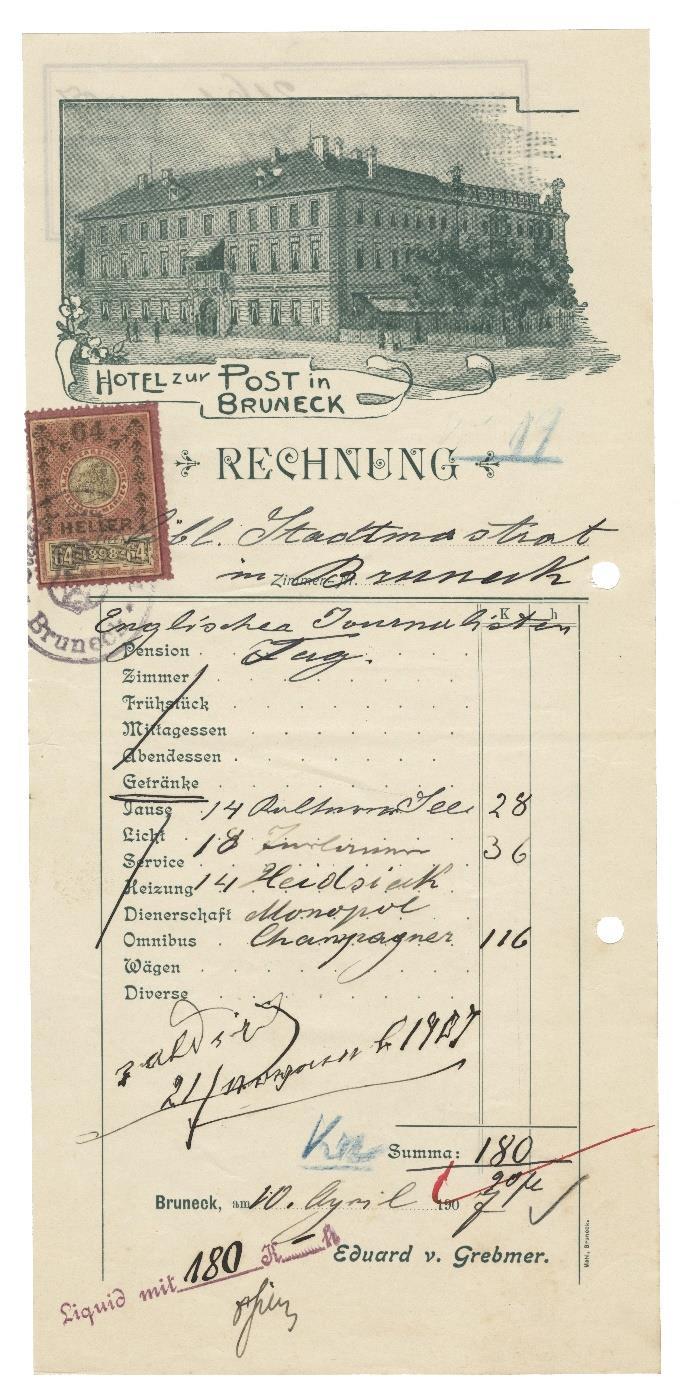 HOTEL zur POST in
BRUNECK
RECHNUNG
64
HELLER
1898
64 64
löbl. Stadtmastrat
in Zimmer Bruneck
K h
Englischen Journalisten
Pension Tag.
Zimmer
Frühstück
Mittagessen
Abendessen
Getränke
Jause 14 28
Licht 18
Service 36
Heizung 14 Heidsieck
Dienerschaft Monopol
Omnibus Champagner 116
Wägen
Diverse
21/ 1907
Summa: 180
Bruneck, am 10. April 1907
Eduard v. Grebmer.
Liquid mit 180 K h
Bruneck
Mahl, Bruneck.